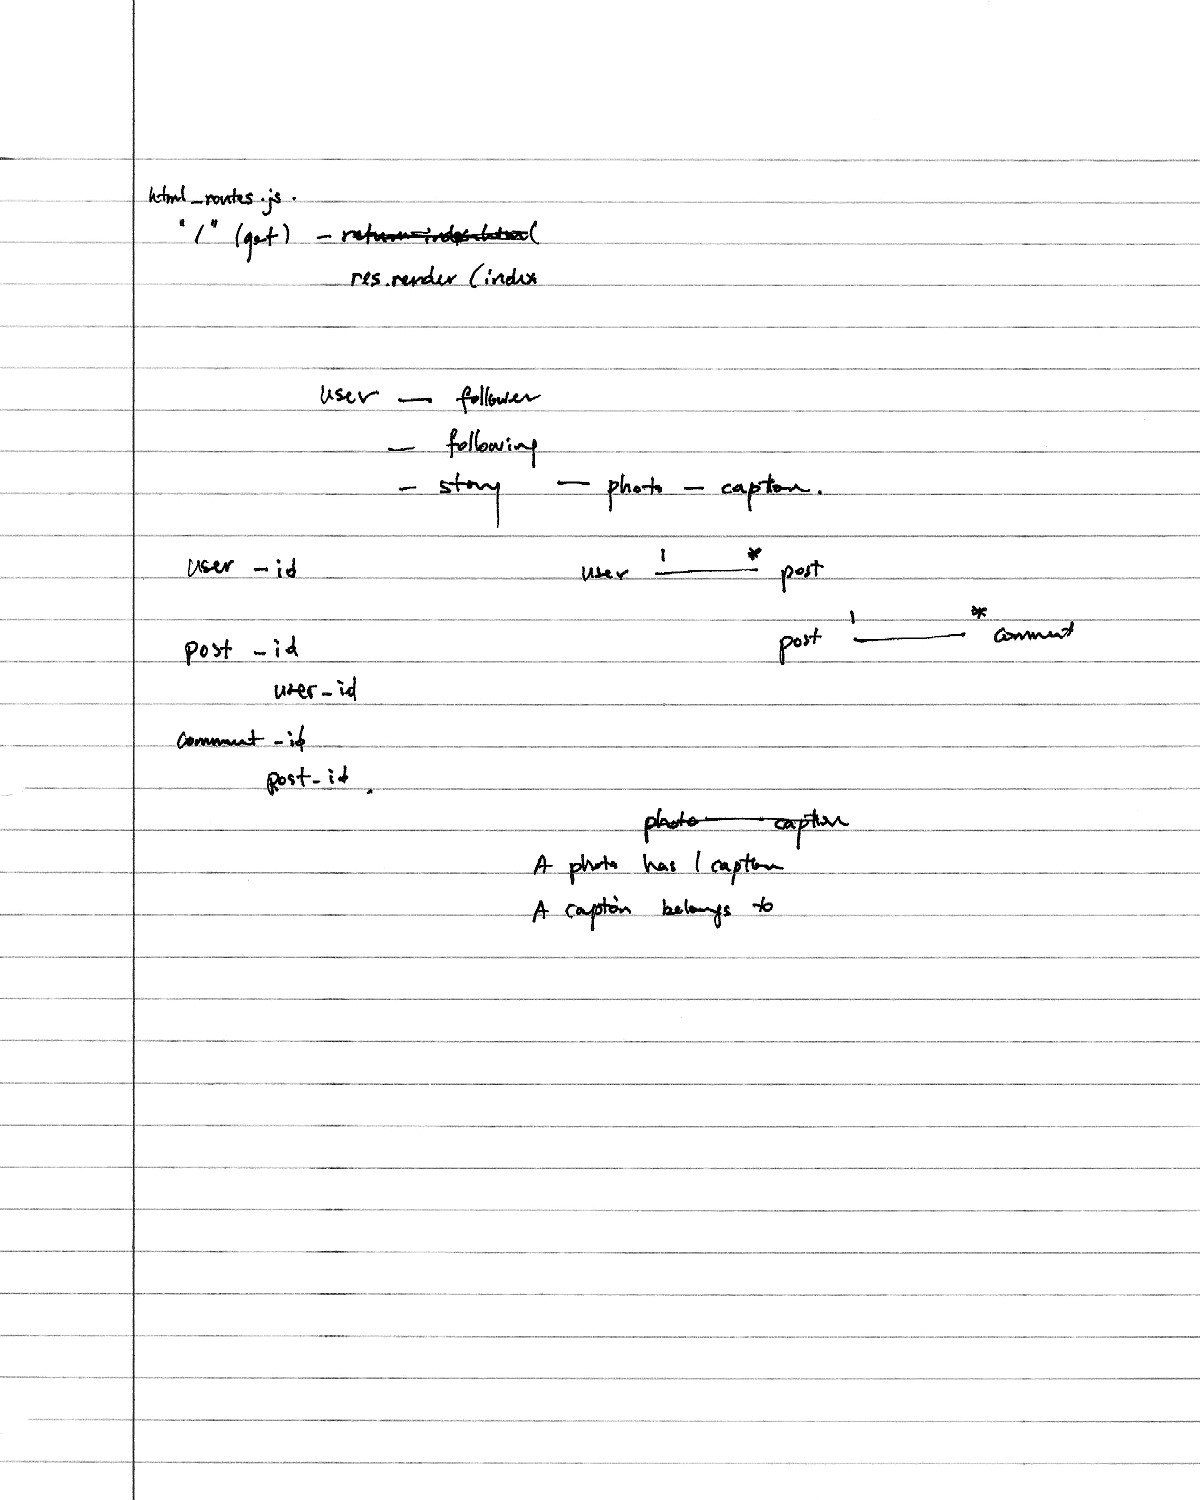 html_routes.js.
"/" (get) - return index.html
res.render (index
user — follower
— following
— story — photo — caption.
user - id
user 1 * post
post 1 * comment
post - id
user-id
comment - id
post-id.
photo caption
A photo has 1 caption
A caption belongs to